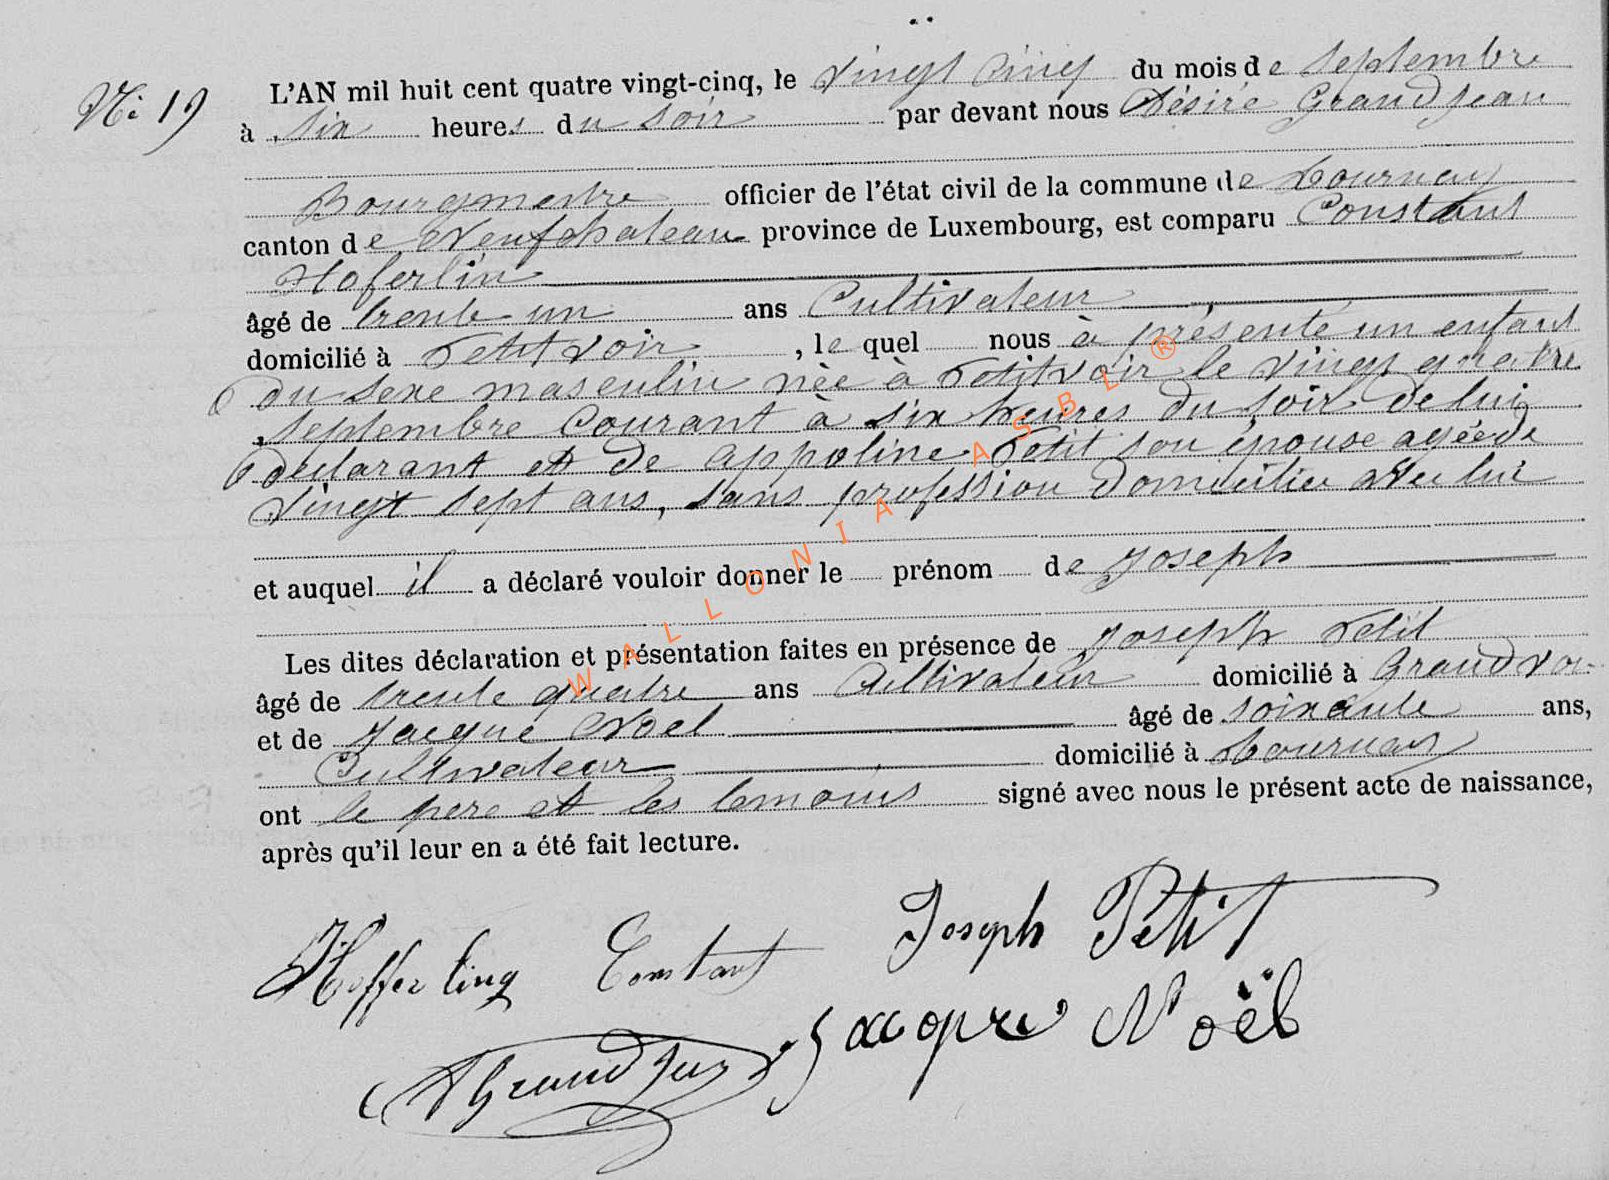 No 19
L'AN mil huit cent quatre vingt-cinq, le vingt cinq du mois de septembre
à six heures du soir par devant nous Désiré Grandjean
Bourgmestre officier de l'état civil de la commune de Tournay
canton de Neufchateau province de Luxembourg, est comparu Constant
Hoferlin
âgé de trente un ans Cultivateur
domicilié à Petitvoir, le quel nous à présenté un enfant
du sexe masculin née à Petitvoir le vingt quatre
septembre courant à six heures du soir de lui
déclarant et de Appoline Petit son épouse agée de
vingt sept ans, sans profession domiciliée avec lui
et auquel il a déclaré vouloir donner le prénom de Joseph
Les dites déclaration et présentation faites en présence de Joseph Petit
âgé de trente quatre ans Cultivateur domicilié à Grandvoir
et de Jacque Noel âgé de soixante ans,
Cultivateur domicilié à Tournay
ont le pere et les temoins signé avec nous le présent acte de naissance,
après qu'il leur en a été fait lecture.
Hofferling Constant Joseph Petit
Jacque Noël
DGrandjean
WALLONIA ASBL ®